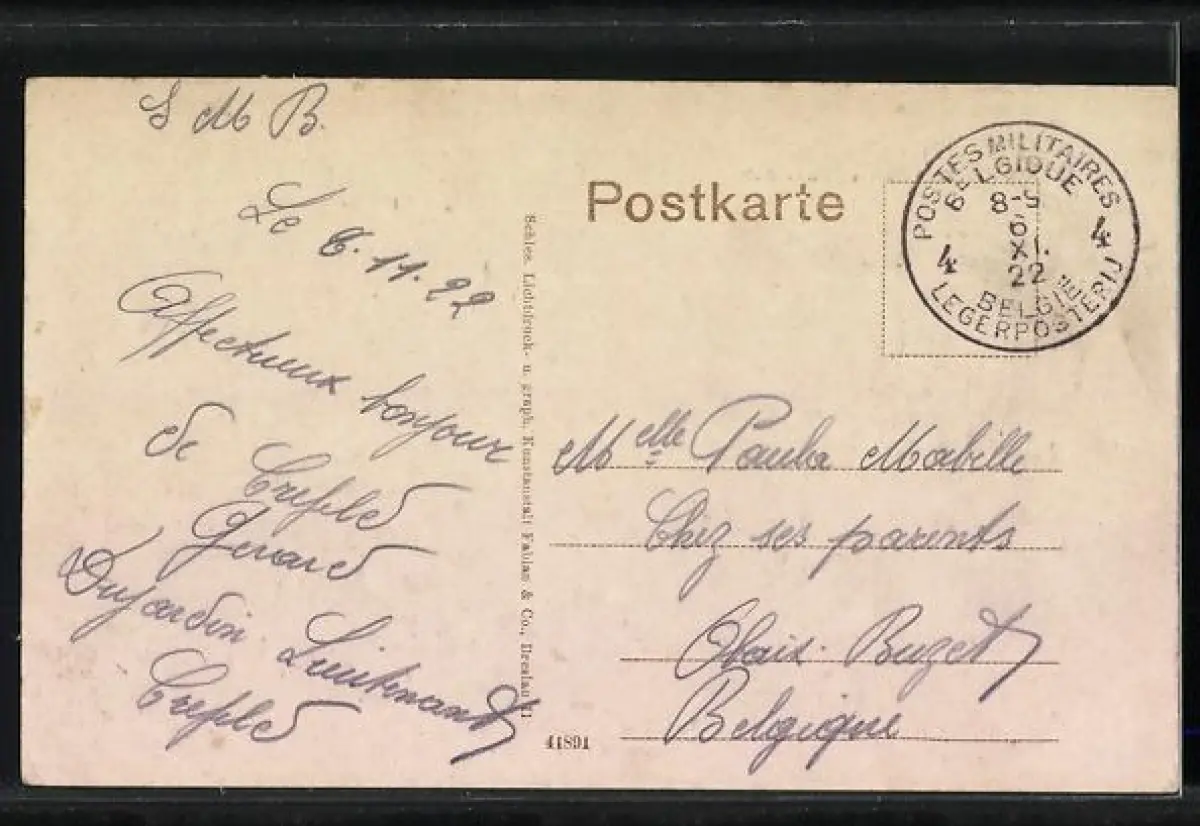 S M B.
Le 6.11.22
Affectueux bonjour
de
Gérard
Dujardin Lieutenant
Postkarte
Schles. Lichtdruck- u. graph. Kunstanstalt Fabian & Co., Breslau II
41891
POSTES MILITAIRES
BELGIQUE
8-9
6
XI.
22
4 4
BELGIË
LEGERPOSTERIJ
Melle Paula Mabille
Chez ses parents
Obaix-Buzet
Belgique